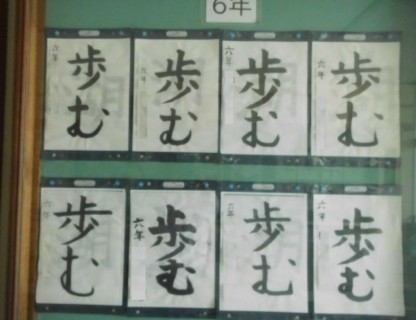 6年
六年 歩む
六年 歩む
六年 歩む
六年 歩む
六年 歩む
六年 歩む
六年 歩む
六年 歩む